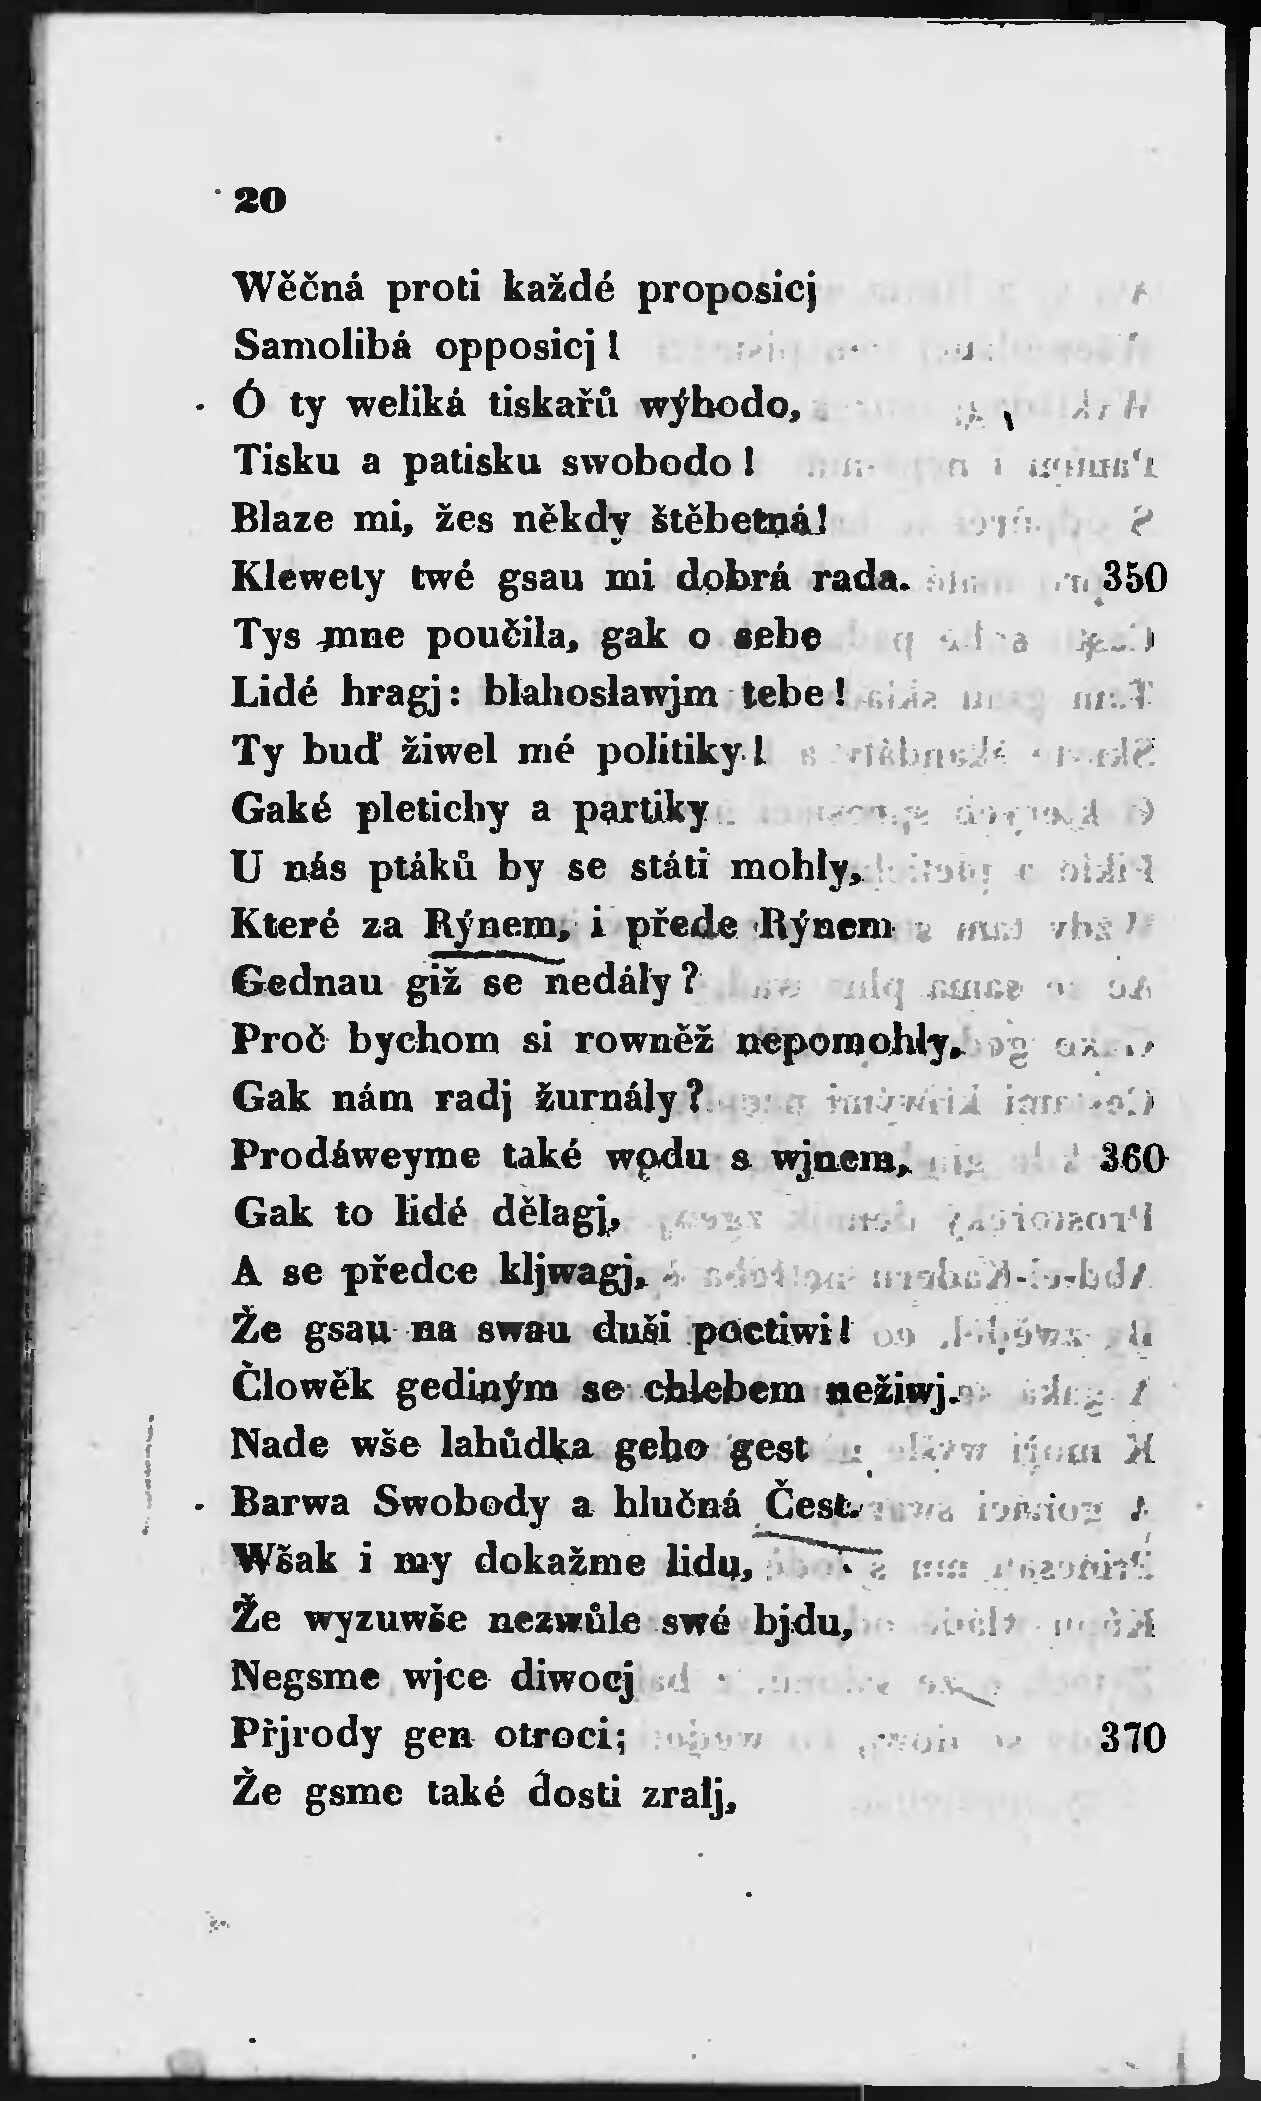 20
Wěčná proti každé proposicj
Samolibá opposicj!
Ó ty weliká tiskařů wýhodo,
Tisku a patisku swobodo!
Blaze mi, žes někdy štěbetná!
Klewety twé gsau mi dobrá rada. 350
Tys mne poučila, gak o sebe
Lidé hragj: blahoslawjm tebe!
Ty buď žiwel mé politiky!
Gaké pletichy a partiky
U nás ptáků by se státi mohly,
Které za Rýnem, i přede Rýnem
Gednau giž se nedály?
Proč bychom si rowněž nepomohly,
Gak nám radj žurnály?
Prodáweyme také wodu s wjnem, 360
Gak to lidé dělagj,
A se předce kljwagj,
Že gsau na swau duši poctiwi!
Člowěk gediným se chlebem nežiwj.
Nade wše lahůdka geho gest
Barwa Swobody a hlučná Čest.
Wšak i my dokažme lidu,
Že wyzuwše nezwůle swé bjdu,
Negsme wjce diwocj
Přjrody gen otroci; 370
Že gsme také dosti zralj,